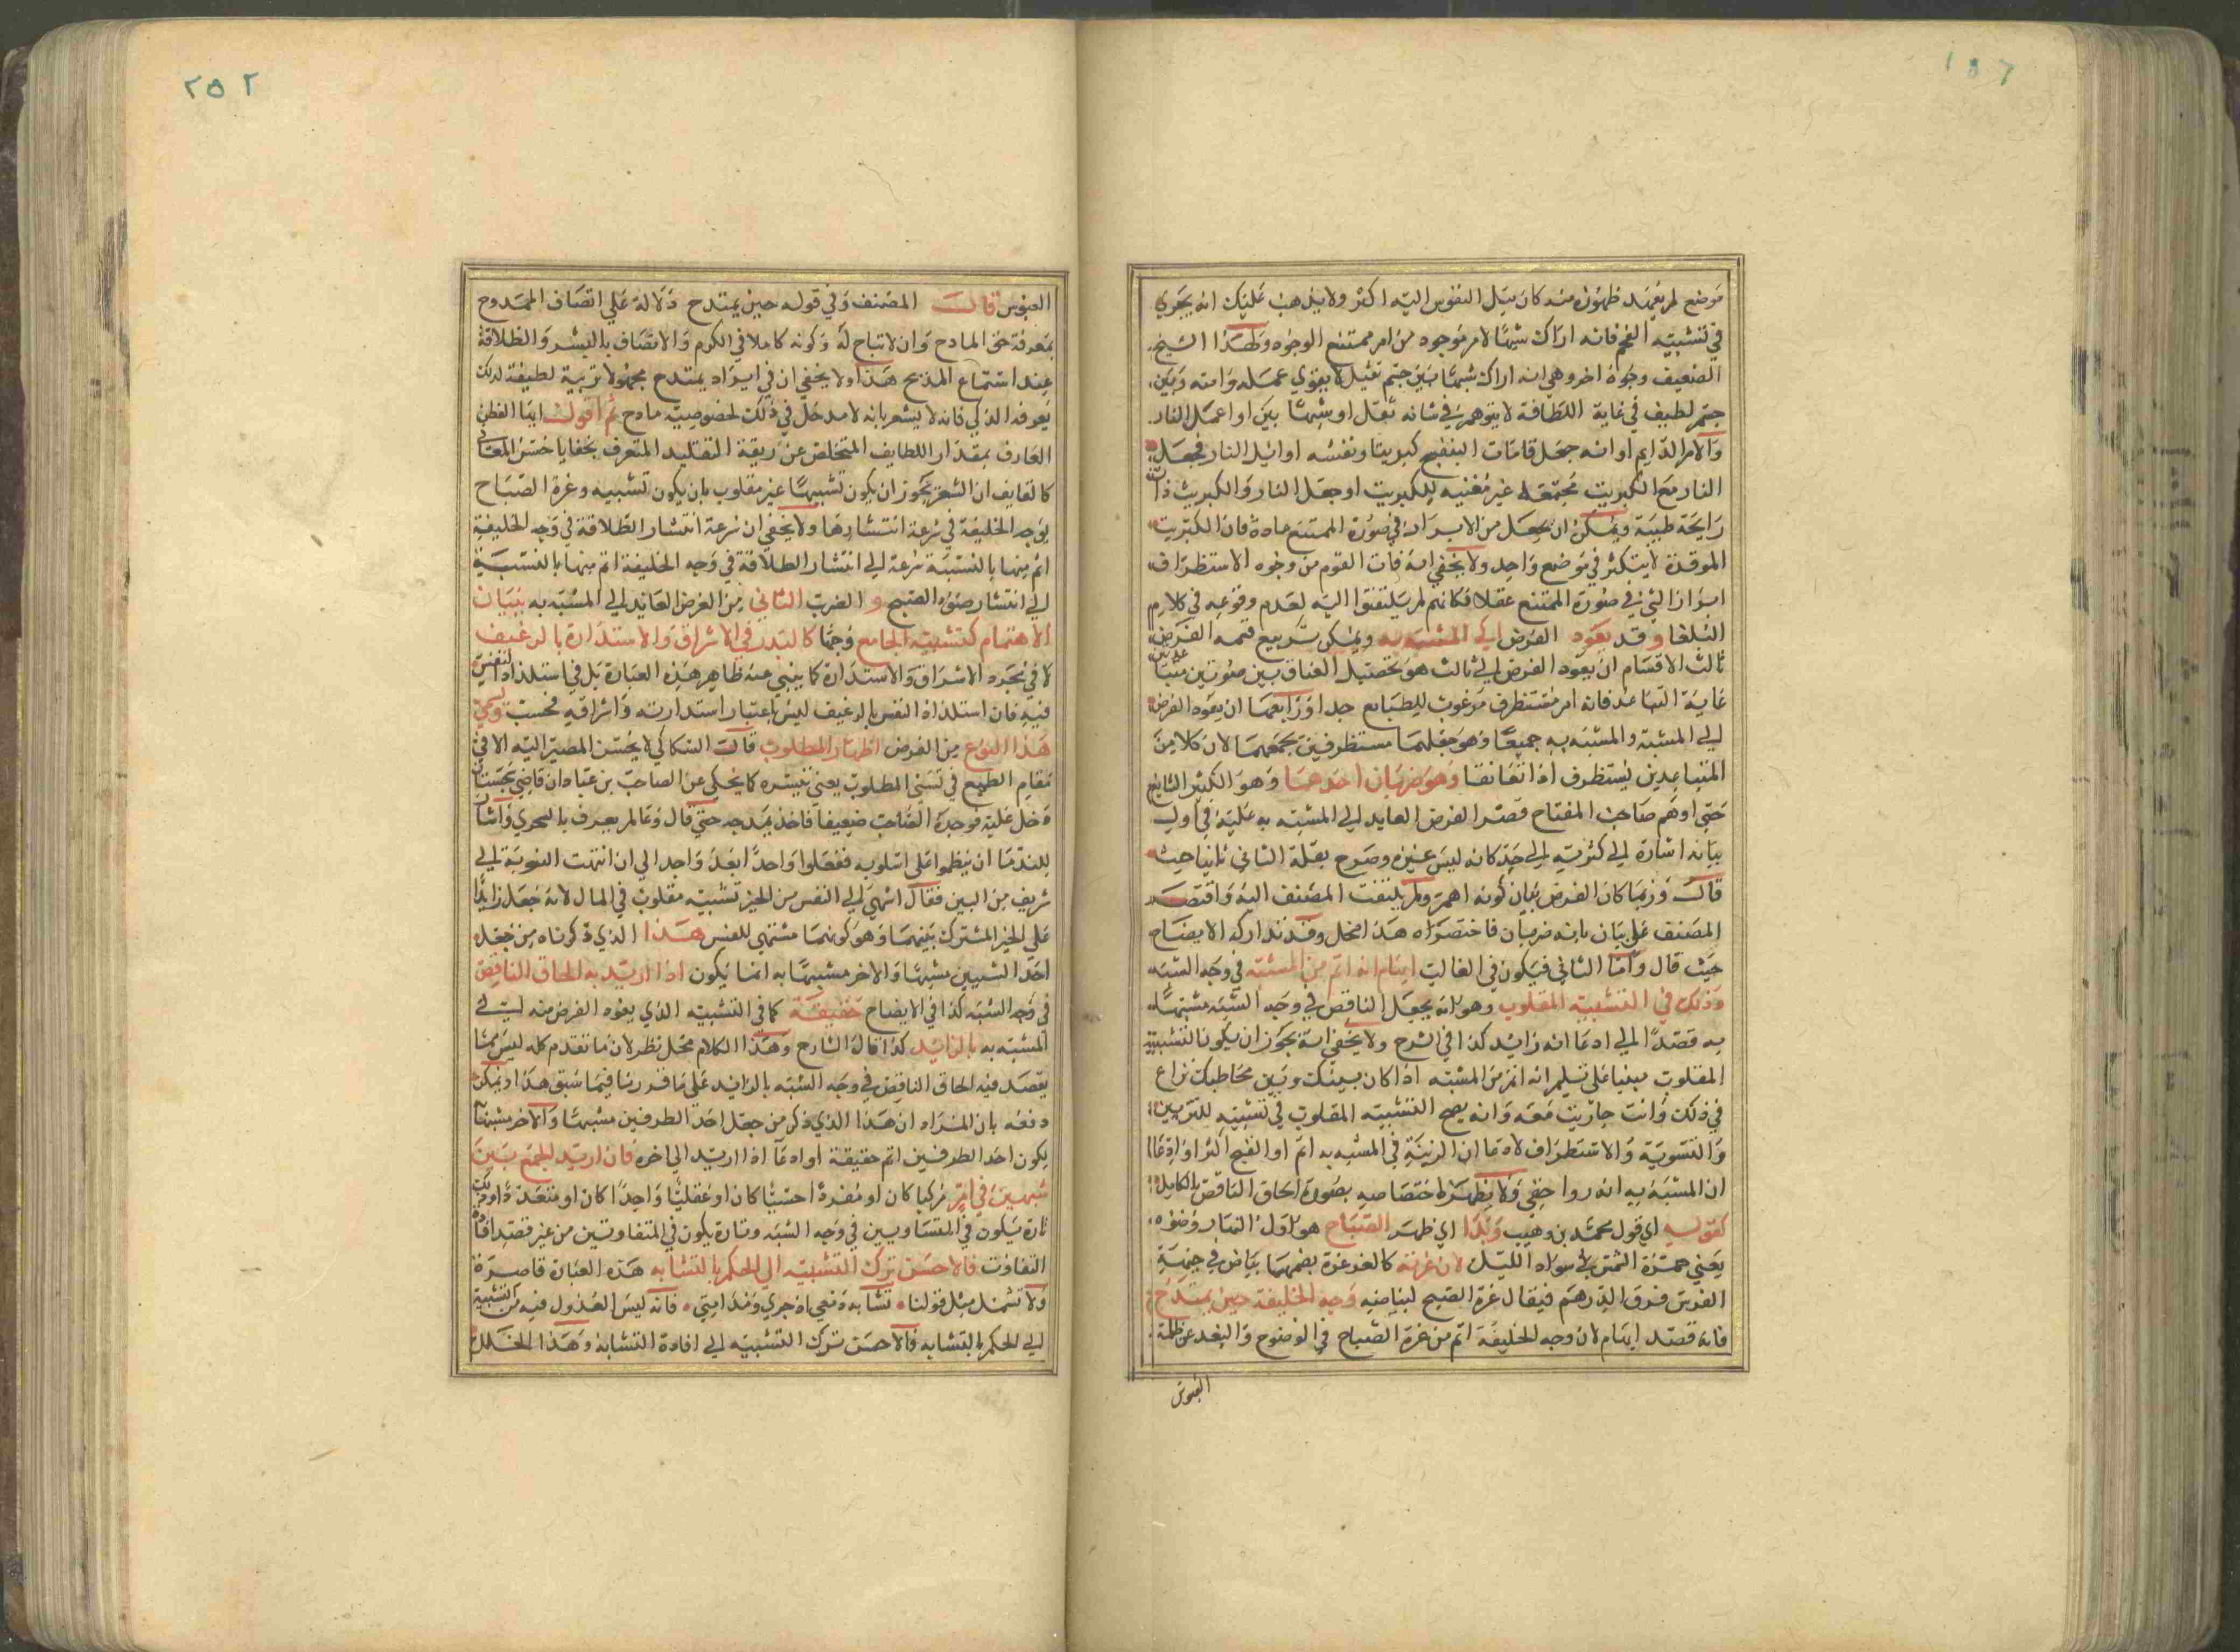 ١٥٦
موضع لم يعهد ظهوره منه كان ميل النفوس اليه اكثر ولا يذهب عليك انه يجري
في تشبيه الفحم فانه اراك شبها لامر موجود من امر ممتنع الوجود ولهذا الشيخ
الضعيف وجوه اخر وهي انه اراك شبها بين جسم ثقيل لا يقوي عمله وامته وبين
جسم لطيف في غاية اللطافة لا يتوهم في شانه ثقل او شبها بين اوا عمل النار
والامر الدايم او انه جعل قامات البنفسج كبريتا ونفسه اوائل النار فجعل
النار مع الكبريت مجتمعة غير مغنيه للكبريت او جعل النار والكبريت ذات
رايحة طيبة ويمكن ان يجعل من الابراز في صورة الممتنع عادة فان الكبريت
الموقدة لا يتكثر في موضع واحد ولا يخفي انه فات القوم من وجوه الاستظراف
ابراز الشي في صورة الممتنع عقلا فكانهم لم يلتفتوا اليه لعدم وقوعه في كلام
البلغا وقد يعود الغرض الي المشبه به ويمكن تربيع قسمه الغرض
ثالث الاقسام ان يعود الغرض الي ثالث هو تحصيل العناق بين صورتين متباعدتين
غاية التباعد فانه امر مستظرف مرغوب للطبايع جدا ورابعها ان يعود الغرض
الي المشبه والمشبه به جميعا وهو جعلهما مستظرفين بجمعهما لان كلا من
المتباعدين يستظرف اذا تعانقا وهو ضربان احدهما وهو الكثير الشايع
حتي اوهم صاحب المفتاح قصر الغرض العايد الي المشبه به عليه في اول
بيانه اشارة الي كثرته الي حد كانه ليس غيره وصرح بقلة الثاني ثانيا حيث
قال وربما كان الغرض بيان كونه اهم ولم يلتفت المصنف اليه واقتصر
المصنف علي بيان بانه ضربان فاختصراه هذا مخل وقد تداركه الايضاح
حيث قال واما الثاني فيكون في الغالب ايهام انه اتم من المشبه في وجه الشبه
وذلك في التشبيه المقلوب وهو انه يجعل الناقص في وجه الشبه مشبها
به قصدا الي ادعا انه زايد كذا في الشرح ولا يخفي انه يجوز ان يكون التشبيه
المقلوب مبنيا علي تسليم انه اتم من المشبه اذا كان بينك وبين مخاطبك نزاع
في ذلك وانت جاريت معه وانه يصح التشبيه المقلوب في تشبيه للتزيين
والتسوية والاستطراف لادعا ان الزينة في المشبه به اتم او القبح اكثر او ادعا
ان المشبه به اندر واخفي ولا يظهر اختصاصه بصورة الحاق الناقص بالكامل
كقوله اي قول محمد بن وهيب وبدا اي ظهر الصباح هو اول النهار وضوءه
يعني حمرة الشمس في سواد الليل لان غرته كالغر غرة بضمهما بياض في جبهة
الفرس فوق الدرهم فيقال غرة الصبح لبياضه وجه الخليفة حين يمتدح
فانه قصد ايهام لان وجه الخليفة اتم من غرة الصباح في الوضوح والبعد عن ظلمة
العبوس
٢٥٢
العبوس قال المصنف وفي قوله حين يمتدح دلالة علي اتصاف الممدوح
بمعرفة حق المادح وان لا تباح له وكونه كاملا في الكرم والاتصاف بالبشر والطلاقة
عند استماع المديح هذا ولا يخفي ان في ايراد يمتدح مجهولا تربية لطيفة لذلك
يعرفه الذكي فانه لا يشعر بانه لا مدخل في ذلك لخصوصية مادح ثم اقول ايها الفطن
العارف بمقدار اللطايف المتخلص عن ربقة التقليد المتعرف بخفايا حسن المعاني
كالتعايف ان الشعر يجوز ان يكون تشبيها غير مقلوب بان يكون تشبيه وغرة الصباح
بوجه الخليفة في سرعة انتشارها ولا يخفي ان سرعة انتشار الطلاقة في وجه الخليفة
اتم منها بالنسبة سرعة الي انتشار الطلاقة في وجه الخليفة اتم منها بالنسبة
الي انتشار ضوء الصبح و الضرب الثاني من الغرض العايد الي المشبه به بيان
الاهتمام كتشبيه الجامع وجها كالبدر في الاشراق والاستدارة بالرغيف
لا في مجرد الاشراق والاستدارة كما ينبي عنه ظاهر هذه العبارة بل في استلذاذ النفس
فيه فان استلذاذ النفس بالرغيف ليس باعتبار استدارته واشراقه فحسب ويسمي
هذا النوع من الغرض اظهار المطلوب قال السكاكي لا يحسن المصير اليه الا في
مقام الطمع في تسني المطلوب يعني تيسره كما يحكي عن الصاحب بن عباد ان قاضي سجستان
دخل عليه فوجده الصاحب ضعيفا فاخذ يمدحه حتي قال وعالم يعرف بالسجزي واشار
للندما ان ينظموا علي اسلوبه ففعلوا واحدا بعد واحد الي ان انتهت النوبة الي
شريف من البين فقال اشهي الي النفس من الخبز تشبيه مقلوب في المال لانه جعل زايدا
علي الخبز المشترك بينهما وهو كونهما مشتهي للنفس هذا الذي ذكرناه من جعل
احد الشيين مشبها والاخر مشبها به انما يكون اذا اريد به الحاق الناقص
في وجه الشبه كذا في الايضاح حقيقة كما في التشبيه الذي يعود الغرض منه الي
المشبه به بالزايد كذا قال الشارح وهذا الكلام محل نظر لان ما تقدم كله ليس مما
يقصد فيه الحاق الناقص في وجه الشبه بالزايد علي ما قررنا فيما سبق هذا ويمكن
دفعه بان المراد ان هذا الذي ذكر من جعل احد الطرفين مشبها والاخر مشبها به
يكون احد الطرفين اتم حقيقة او ادعا اذا اريد الي اخره فان اريد الجمع بين
شيهين في امر مركبا كان او مفردا حسيا كان او عقليا واحدا كان او متعددا وذلك
تارة يكون في المتساويين في وجه الشبه وتارة يكون في المتفاوتين من غير قصد افادة
التفاوت فالاحسن ترك التشبيه الي الحكم بالتشابه هذه العبارة قاصرة
ولا تشمل مثل قولنا تشابه دمعي اذ جري ومدامتي فانه ليس العدول فيه من التشبيه
الي الحكم بالتشابه فالاحسن ترك التشبيه الي افادة التشابه وهذا الخلل